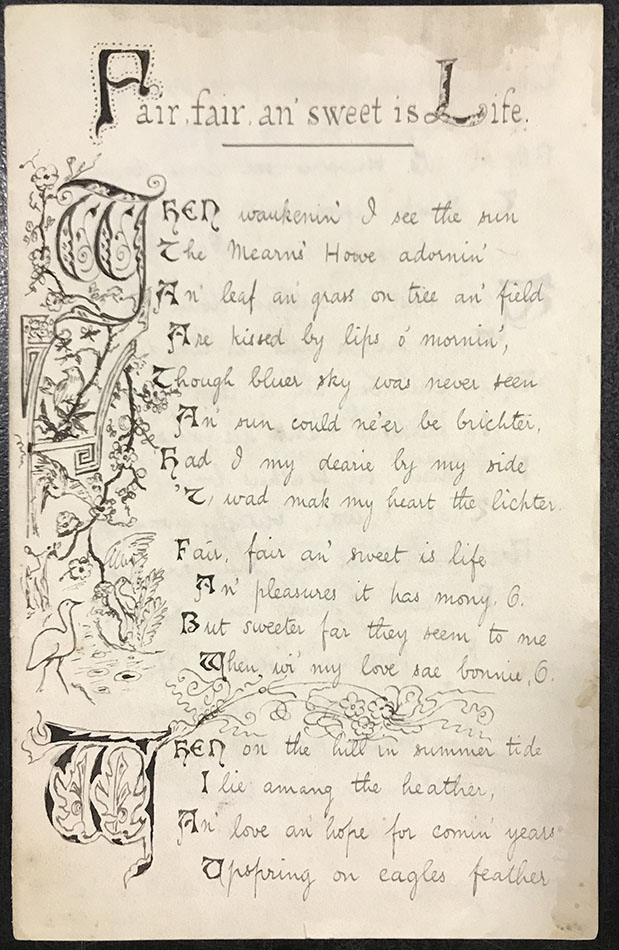 Fair, fair, an' sweet is Life.
When waukenin' I see the sun
The Mearns' Howe adornin'
An' leaf an' grass on tree an' field
Are kissed by lips o' mornin',
Though bluer sky was never seen
An' sun could ne'er be brichter,
Had I my dearie by my side
'T, wad mak my heart the lichter.
Fair, fair an' sweet is life
An' pleasures it has mony, O.
But sweeter far they seem to me
When wi' my love sae bonnie, O.
When on the hill in summer tide
I lie amang the heather,
An' love an' hope for comin' years
Upspring on eagles feather